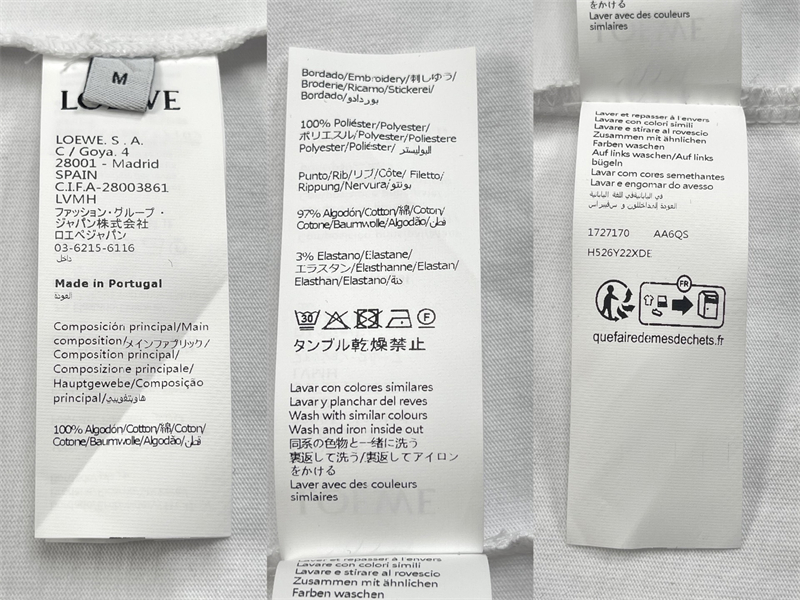 M
LOEWE
LOEWE. S . A.
C / Goya. 4
28001 - Madrid
SPAIN
C.I.F.A-28003861
LVMH
ファッション・グループ・
ジャパン株式会社
ロエベジャパン
03-6215-6116
داخل
Made in Portugal
العودة
Composición principal/Main
composition/メインファブリック/
Composition principal/
Composizione principale/
Hauptgewebe/Composição
principal/
100% Algodón/Cotton/綿/Coton/
Cotone/Baumwolle/Algodão/قطن
Bordado/Embroidery/刺しゅう/
Broderie/Ricamo/Stickerei/
Bordado/بوردادو
100% Poliéster/Polyester/
ポリエスル/Polyester/Poliestere
Polyester/Poliéster/البوليستر
Punto/Rib/リブ/Côte/ Filetto/
Rippung/Nervura/بونتو
97% Algodón/Cotton/綿/Coton/
Cotone/Baumwolle/Algodão/قطن
3% Elastano/Elastane/
エラスタン/Élasthanne/Elastan/
Elasthan/Elastano/
30
F
タンブル乾燥禁止
Lavar con colores similares
Lavar y planchar del reves
Wash with similar colours
Wash and iron inside out
同系の色物と一緒に洗う
裏返して洗う/裏返してアイロン
をかける
Laver avec des couleurs
simlaires
Laver et repasser à l'envers
Lavare con colori simili
Lavare e stirare al rovescio
Zusammen mit ähnlichen
Farben waschen
をかける
Laver avec des couleurs
simlaires
Laver et repasser à l'envers
Lavare con colori simili
Lavare e stirare al rovescio
Zusammen mit ähnlichen
Farben waschen
Auf links waschen/Auf links
bügeln
Lavar com cores semethantes
Lavar e engomar do avesso
1727170 AA6QS
H526Y22XDE
FR
quefairedemesdechets.fr